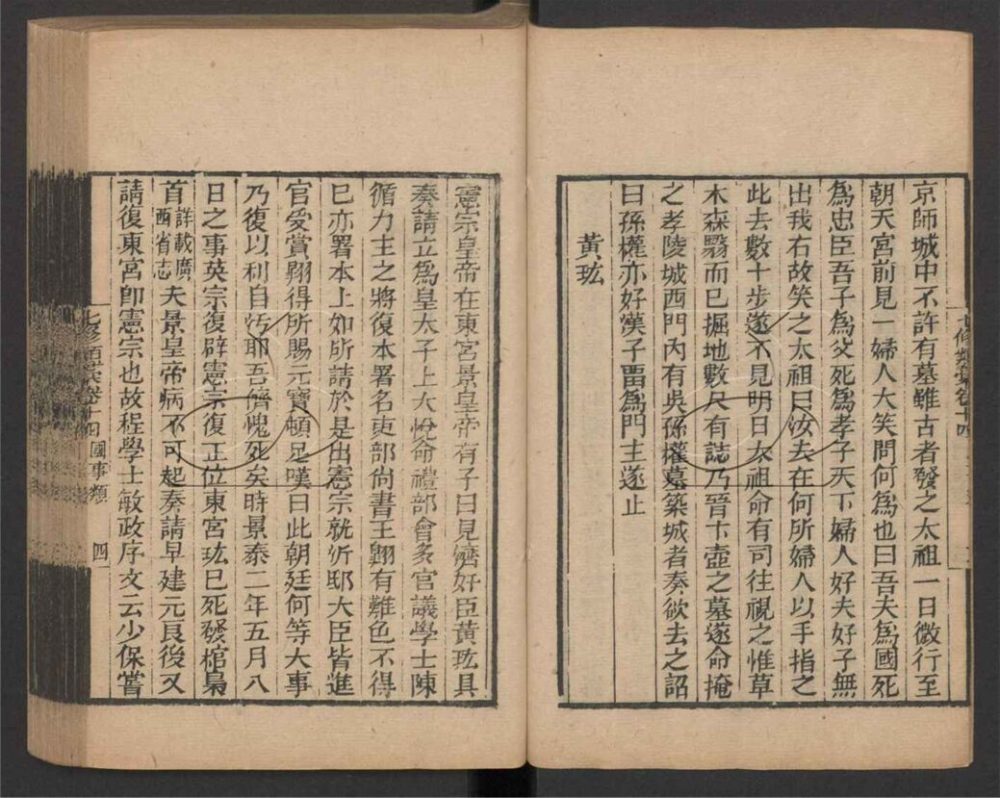 京師城中不許有墓雖古者發之太祖一日微行至
朝天宮前見一婦人大笑問何爲也曰吾夫爲國死
爲忠臣吾子爲父死爲孝子天下婦人好夫好子無
出我右故笑之太祖曰汝去在何所婦人以手指之
此去數十步遂不見明日太祖命有司往視之惟草
木森翳而已掘地數尺有誌乃晉卞壼之墓遂命掩
之孝陵城西門內有吳孫權墓築城者奏欲去之詔
曰孫權亦好漢子畱爲門主遂止
黃玹
憲宗皇帝在東宮景皇帝有子曰見濟奸臣黃玹具
奏請立爲皇太子上大悅命禮部會多官議學士陳
循力主之將復本署名吏部尚書王翺有難色不得
巳亦署本上如所請於是出憲宗就沂邸大臣皆進
官受賞翺得所賜元寶頓足嘆曰此朝廷何等大事
乃復以利自污耶吾儕愧死矣時景泰二年五月八
日之事英宗復辟憲宗復正位東宮玹巳死發棺梟
首詳載廣西省志夫景皇帝病不可起奏請早建元良後又
請復東宮卽憲宗也故程學士敏政序文云少保嘗
七修類稾卷十四 國事類 四